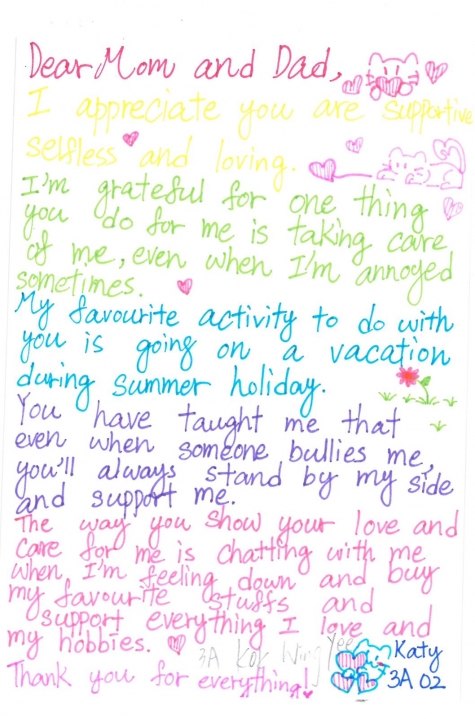 Dear Mom and Dad,
I appreciate you are supportive
selfless and loving.
I'm grateful for one thing
you do for me is taking care
of me, even when I'm annoyed
sometimes.
My favourite activity to do with
you is going on a vacation
during summer holiday.
You have taught me that
even when someone bullies me,
you'll always stand by my side
and support me.
The way you show your love and
care for me is chatting with me
when I'm feeling down and buy
my favourite stuffs and
support everything I love and
my hobbies.
3A Kok Wing Yee
Katy
Thank you for everything!
3A 02